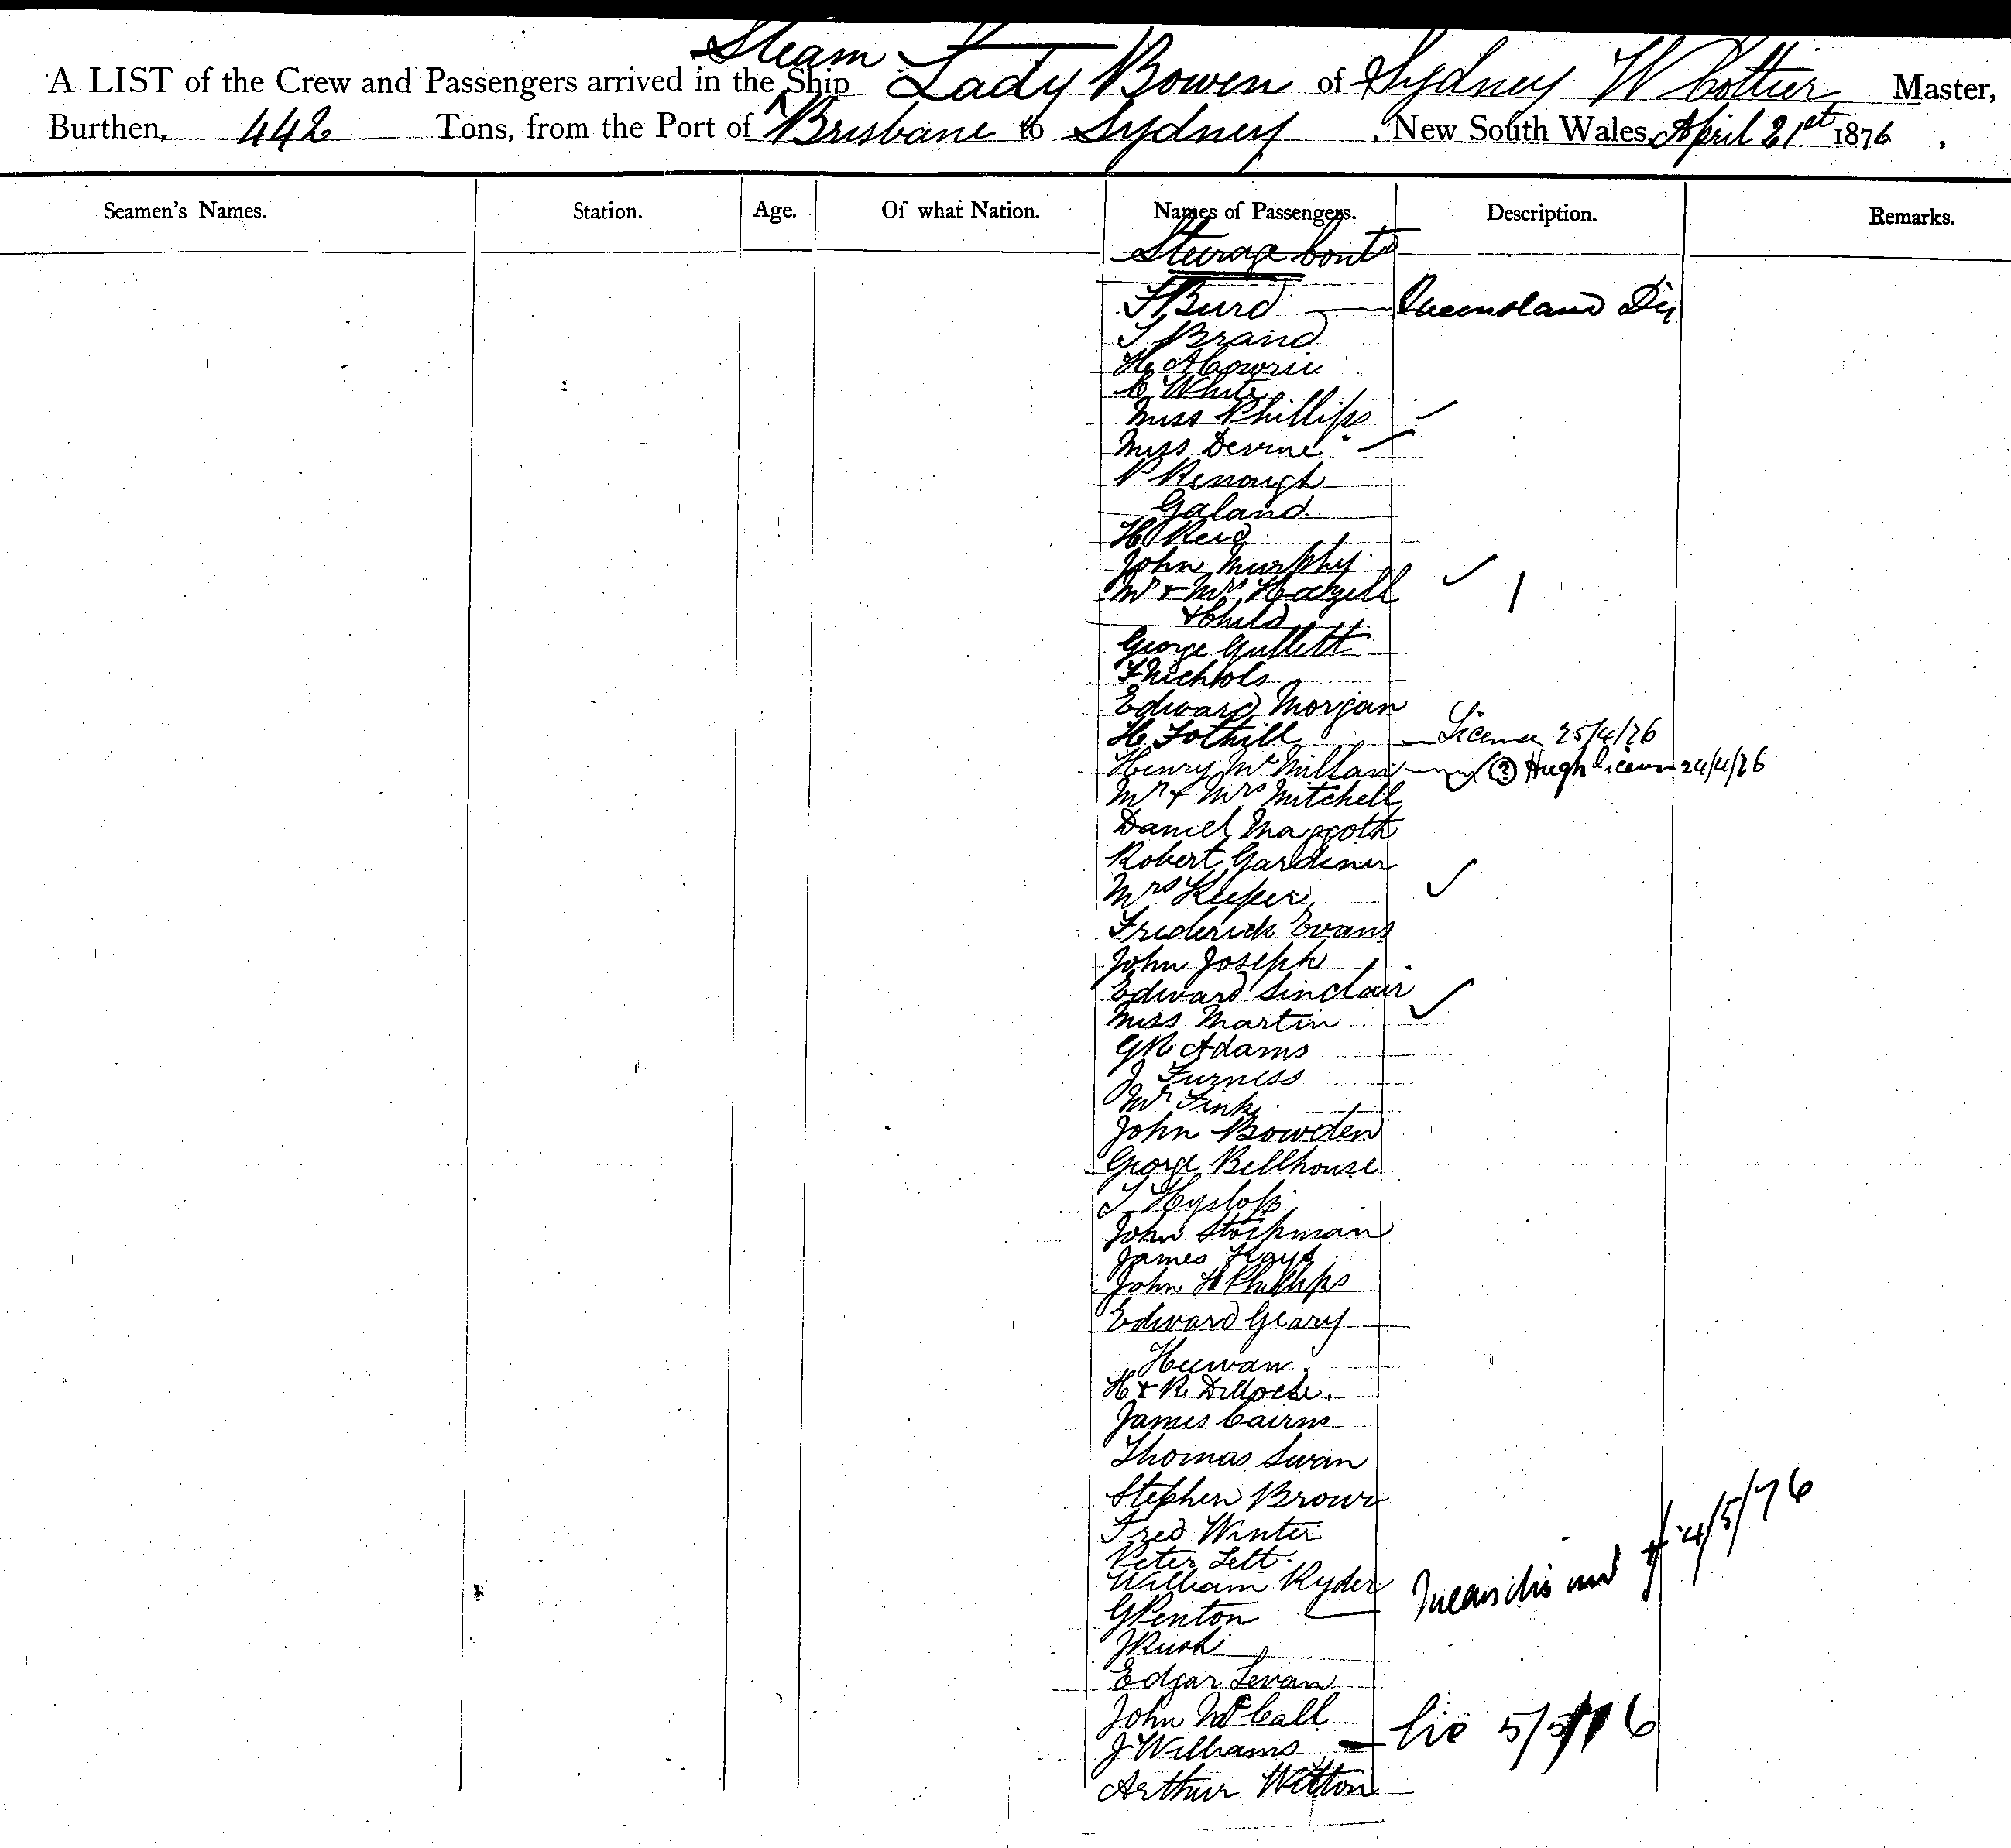 Steam
A LIST of the Crew and Passengers arrived in the Ship Lady Bowen of Sydney W Cottier Master,
Burthen, 442 Tons, from the Port of Brisbane to Sydney, New South Wales, April 21st 1876,
Seamen's Names. Station. Age. Of what Nation. Names of Passengers. Description. Remarks.
Steerage Contd
F Burd Queensland
T Brand
C White
Miss Phillips
Miss Devine
P Renough
Galand
H Reid
John Murphy
Mr & Mrs Hazell
& Child
George Gullett
F Nichols
Edward Morgan
H Tothill License 25/4/76
Henry McMillan (?) Hugh licence 24/4/76
Mr & Mrs Mitchell
Daniel Maggoth
Robert Gardiner
Mrs Keeper
Frederick Evans
John Joseph
Edward Sinclair
Miss Martin
GR Adams
J Furness
Mr Fink
John Bowden
George Bellhouse
T Hyslop
John Stockman
James Kays
John H Phillips
Edward Geary
Heewan
H & R
James Cairns
Thomas Swan
Stephen Brown
Fred Winter
Peter Lett
William Ryder
G Penton 4/5/76
J Rush
Edgar Levan
John McCall
J Williams Lic 5/5/76
Arthur Witton